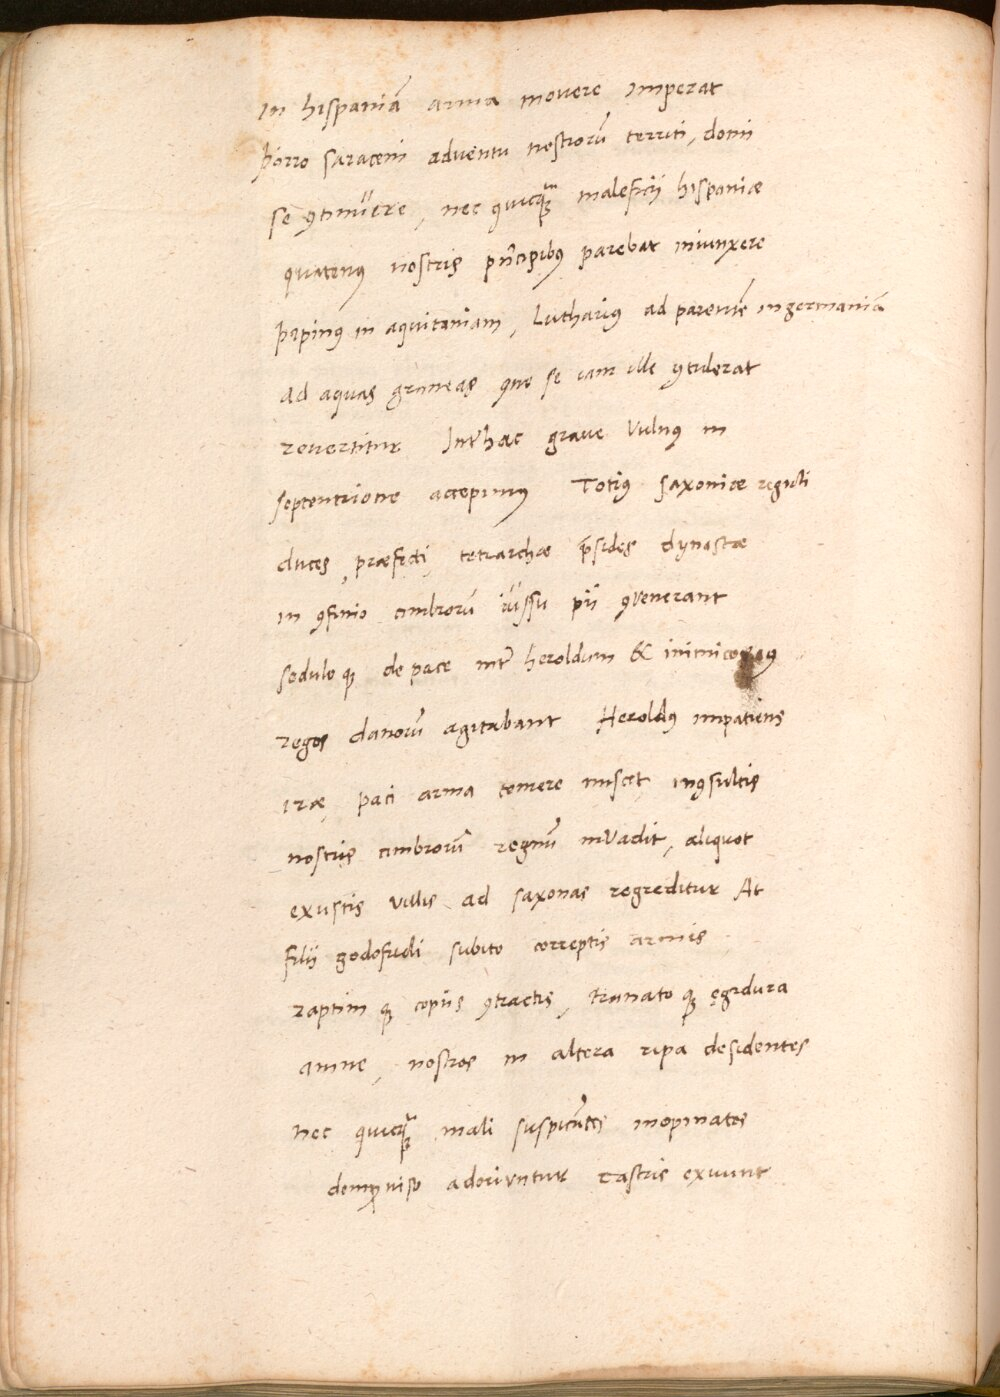 In hispaniā arma movere imperat
porro saraceni adventu nostrorū territi, domi
se ꝯtinuere, nec quicq̄ maleficij hispaniæ
quatenꝰ nostris pn̄cipibꝰ parebat iniunxere
pipinꝰ in aquitaniam, Lutharius ad parentē in germaniā
ad aquas graneas quo se iam ille ꝯtulerat
revertitur Inter hæc grave Vulnꝰ in
septentrione accepimus Totiꝰ saxoniæ reguli
duces, præfecti, tetrarchæ p̄sides dynastæ
in ꝯfinio cimbrorū iussu pii ꝯvenerant
seduloqꝫ de pace int̄ heroldum & inimicos
reges danorū agitabant Heroldꝰ impatiens
iræ paci arma temere miscet, inꝯsultis
nostris cimbrorū regnū inVadit, aliquot
exustis villis ad saxonas regreditur At
filii godofridi subito correptis armis
raptim qꝫ copiis ꝯtractis, tranato qꝫ ęgidura
amne, nostros in altera ripa desidentes
nec quicq̄ mali suspicātes inopinatos
adoriuntur castris exuunt